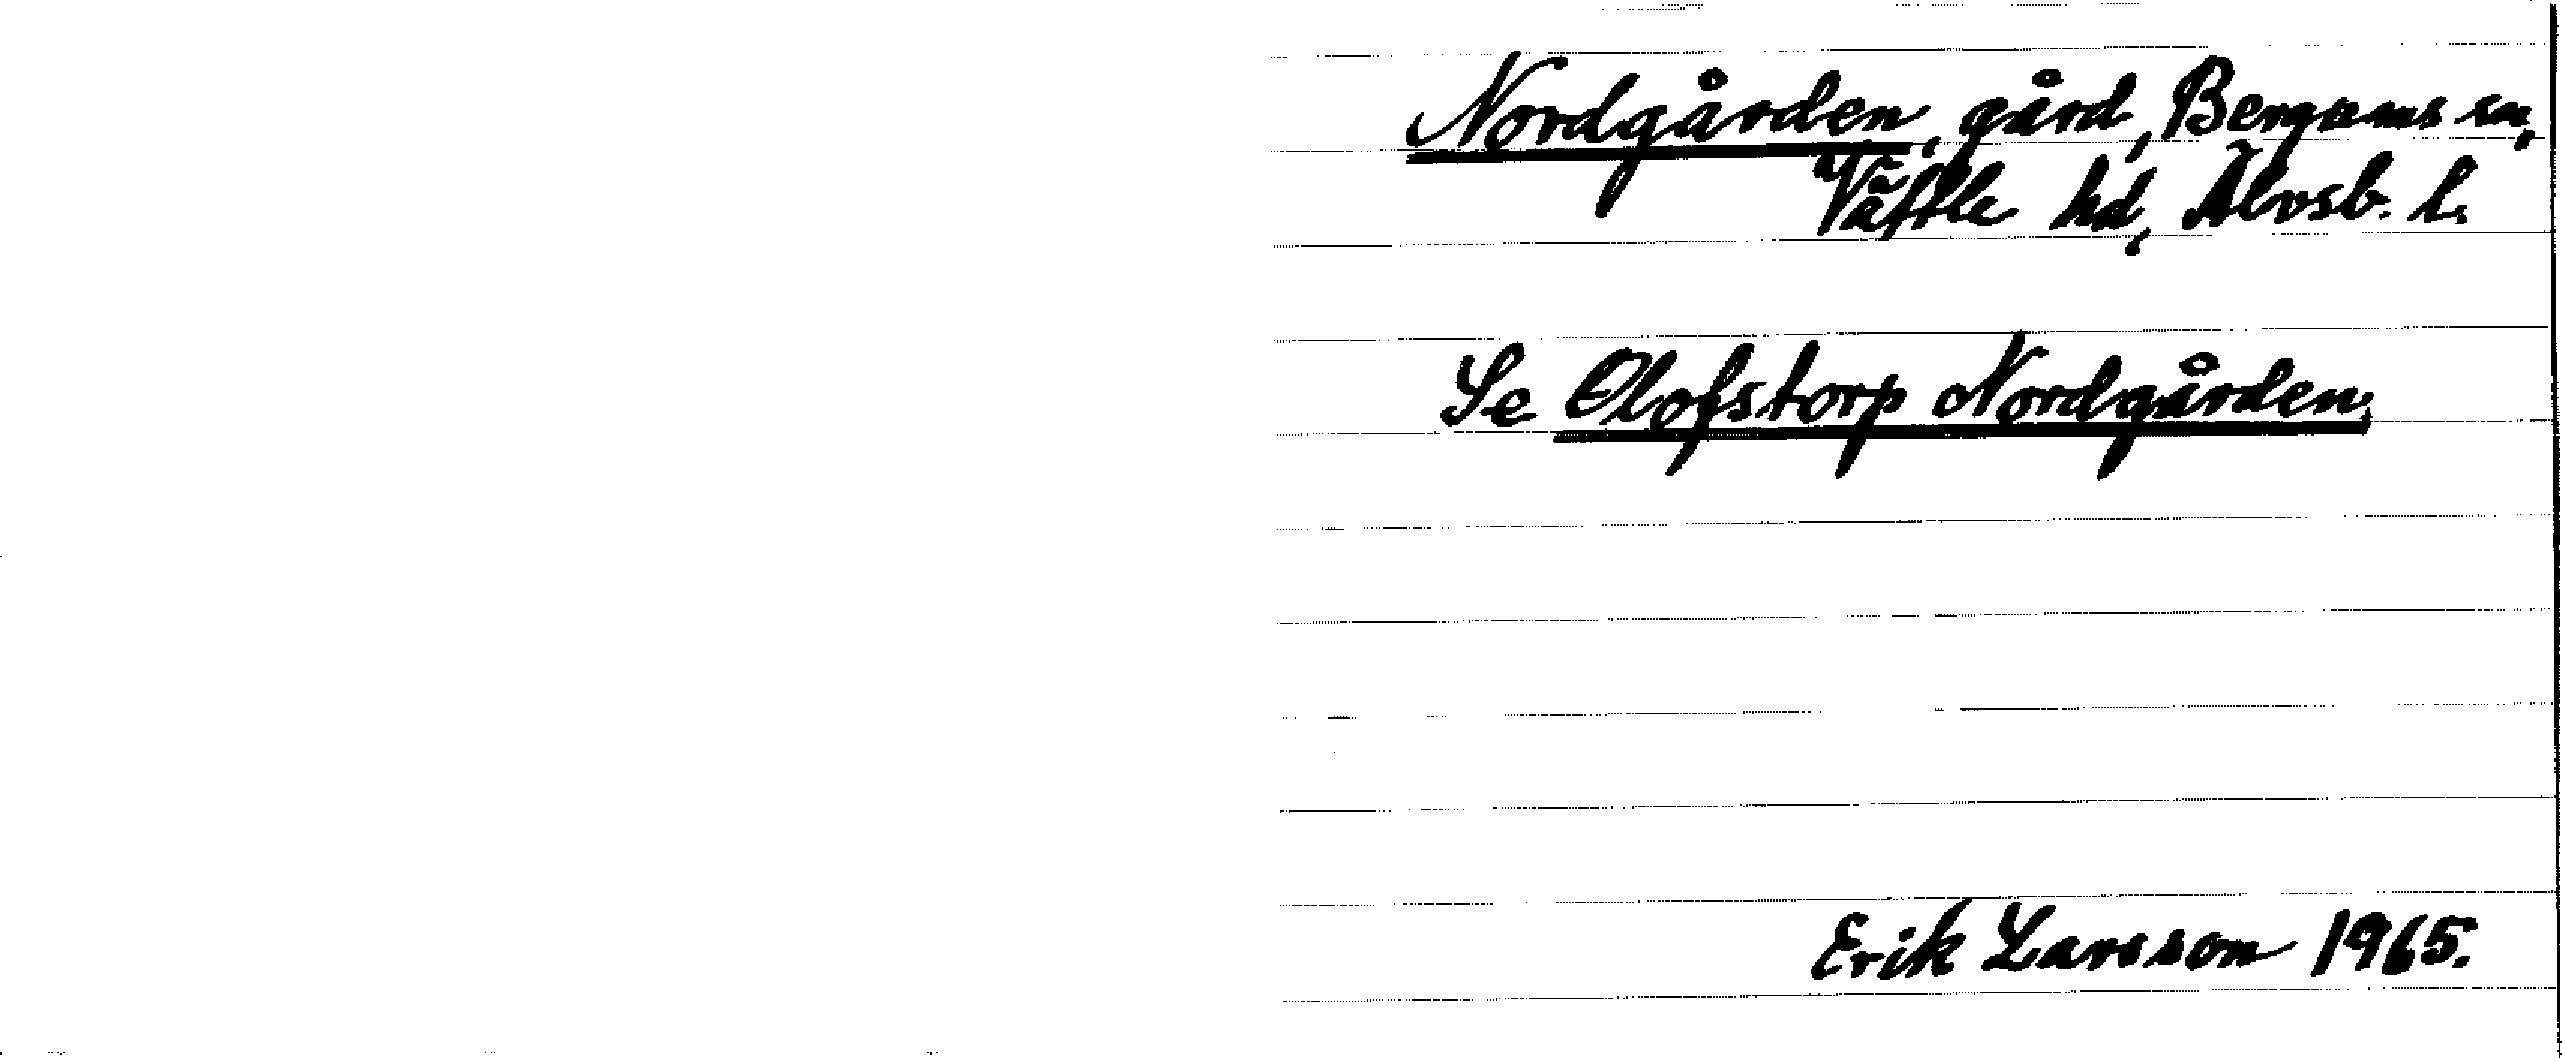 Nordgården, gård, Bergums sn,
Vättle hd, Älvsb. l.
Se Olofstorp Nordgården.
Erik Larsson 1965.